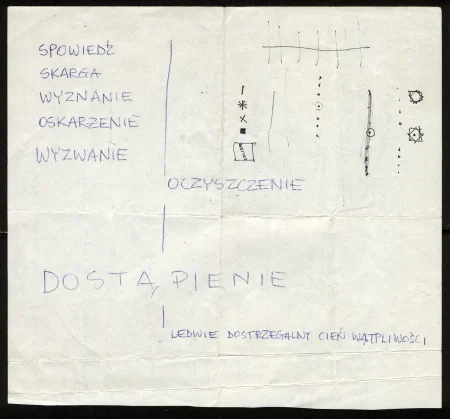 SPOWIEDŹ
SKARGA
WYZNANIE
OSKARŻENIE
WYZWANIE
OCZYSZCZENIE
DOSTĄPIENIE
LEDWIE DOSTRZEGALNY CIEŃ WĄTPLIWOŚCI